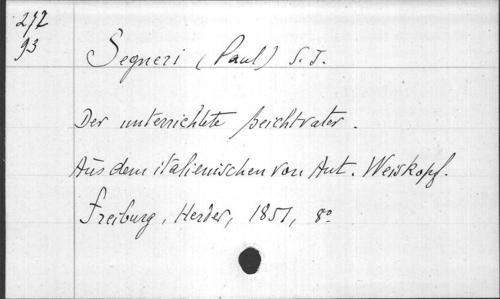 212
93
Segneri (Paul) S.J.
Der unterrichtete Beichtvater.
Aus dem italienischen von Ant. Weiskopf.
Freiburg, Herder, 1851, 8°